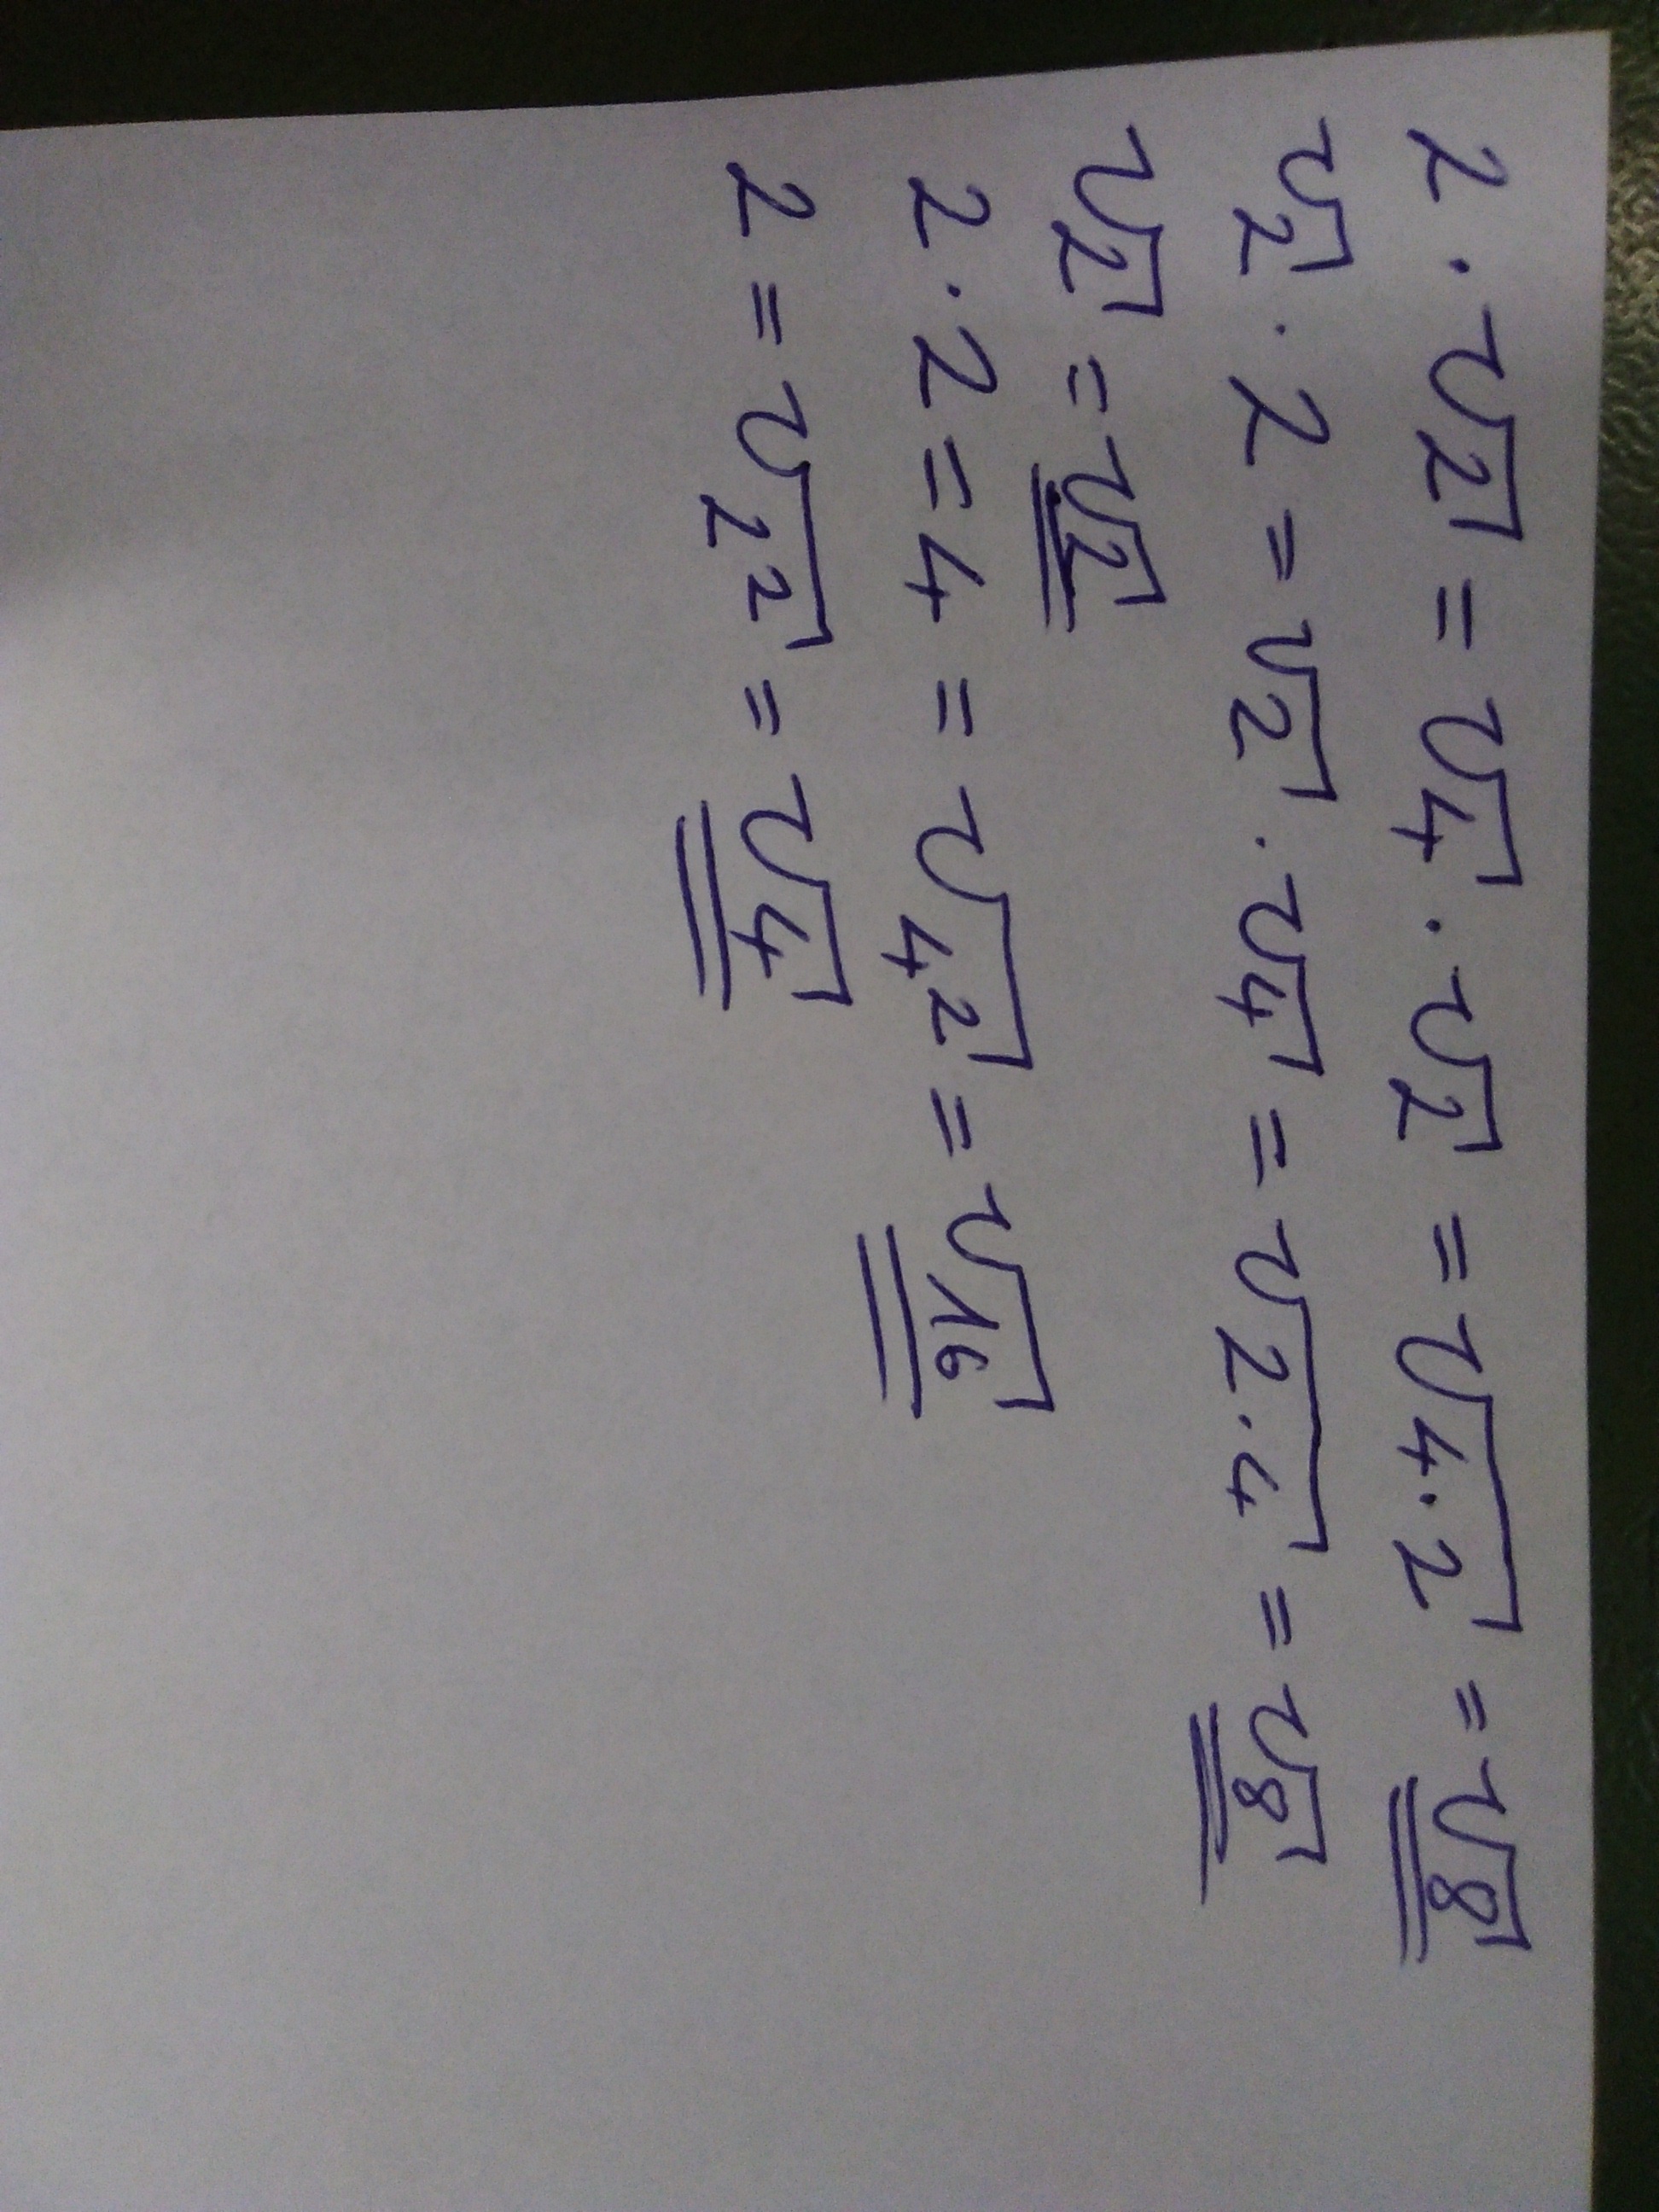 2 · √2 = √4 · √2 = √4·2 = √8
√2 · 2 = √2 · √4 = √2·4 = √8
√2 = √2
2 · 2 = 4 = √4² = √16
2 = √2² = √4